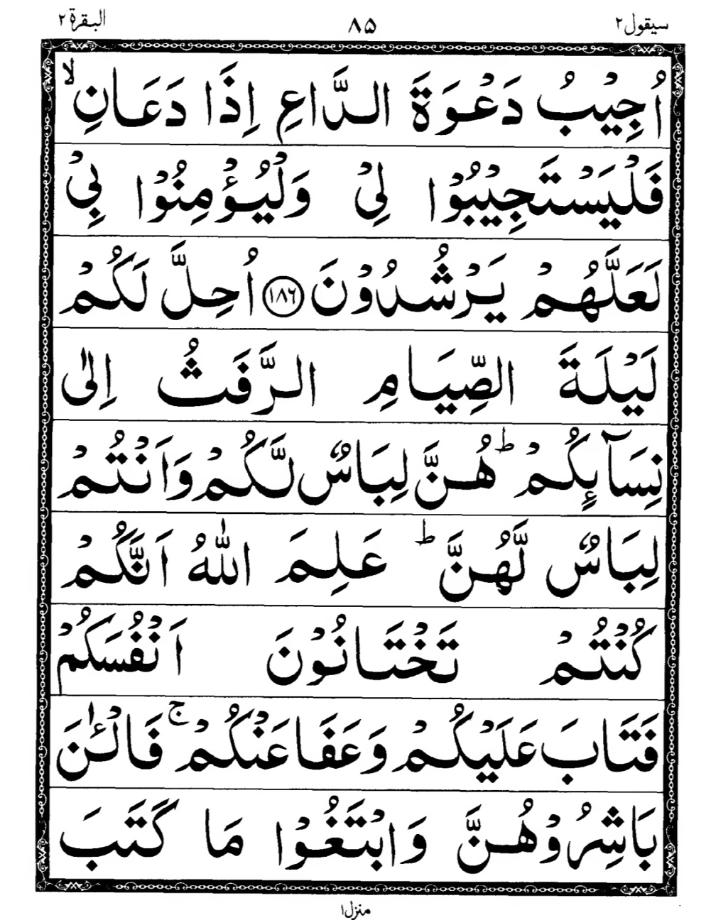 سيقول٢ ٨٥ البقرة ٢
اُجِيْبُ دَعْوَةَ الدَّاعِ اِذَا دَعَانِ ۙ
فَلْيَسْتَجِيْبُوْا لِيْ وَلْيُؤْمِنُوْا بِيْ
لَعَلَّهُمْ يَرْشُدُوْنَ ﴿١٨٦﴾ اُحِلَّ لَكُمْ
لَيْلَةَ الصِّيَامِ الرَّفَثُ اِلٰى
نِسَآئِكُمْ ؕ هُنَّ لِبَاسٌ لَّكُمْ وَاَنْتُمْ
لِبَاسٌ لَّهُنَّ ؕ عَلِمَ اللّٰهُ اَنَّكُمْ
كُنْتُمْ تَخْتَانُوْنَ اَنْفُسَكُمْ
فَتَابَ عَلَيْكُمْ وَعَفَا عَنْكُمْ ۚ فَالْـٰٔنَ
بَاشِرُوْهُنَّ وَابْتَغُوْا مَا كَتَبَ
منزل١